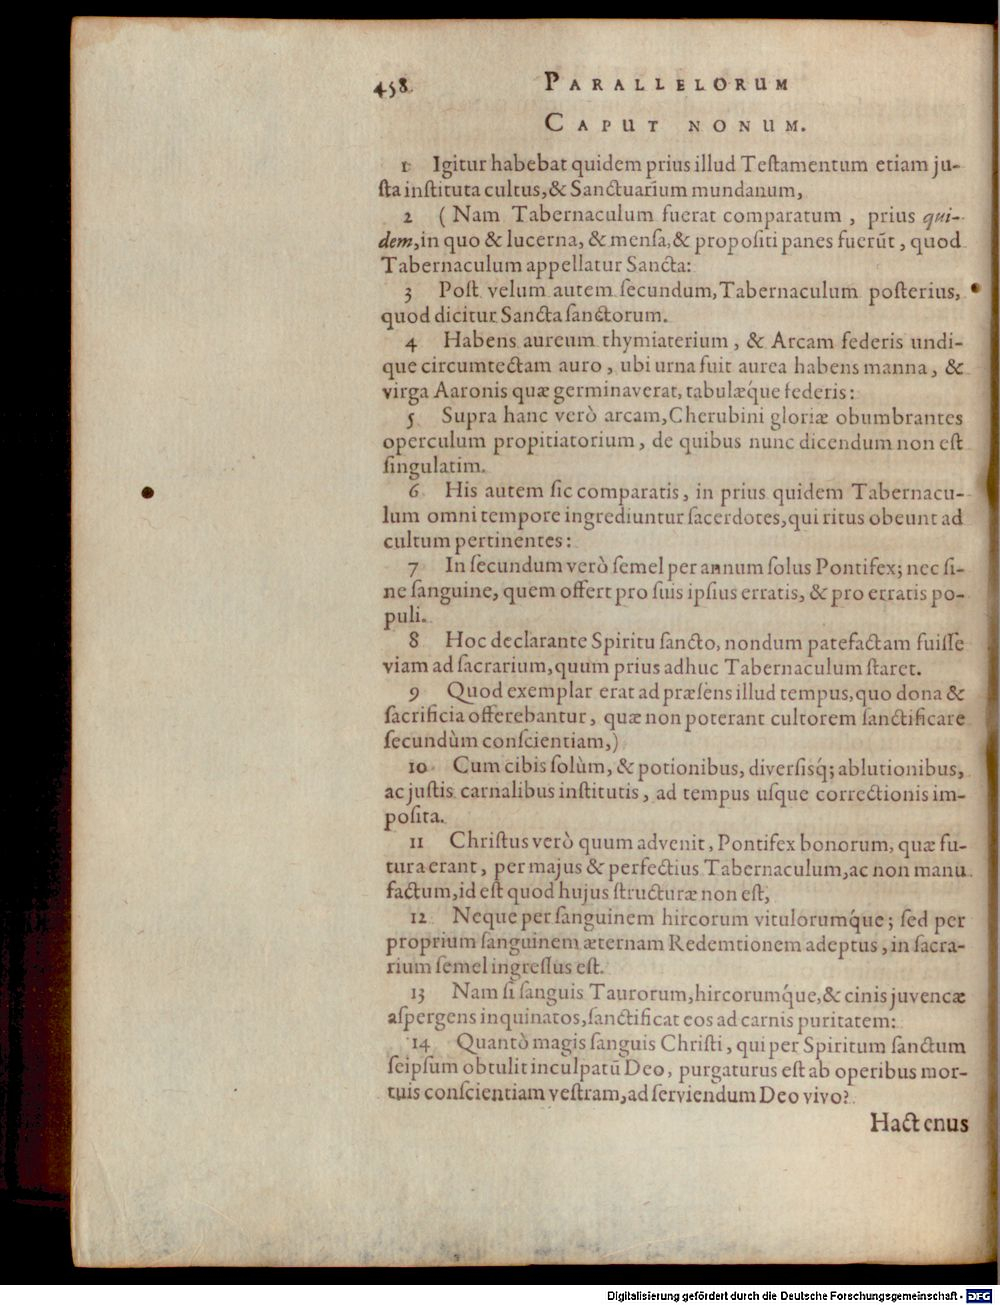 458 PARALLELORUM
CAPUT NONUM.
1 Igitur habebat quidem prius illud Teſtamentum etiam ju-
ſta inſtituta cultus, & Sanctuarium mundanum,
2 (Nam Tabernaculum fuerat comparatum, prius qui-
dem, in quo & lucerna, & menſa, & propoſiti panes fuerūt, quod
Tabernaculum appellatur Sancta:
3 Poſt velum autem ſecundum, Tabernaculum poſterius,
quod dicitur Sancta ſanctorum.
4 Habens aureum thymiaterium, & Arcam federis undi-
que circumtectam auro, ubi urna fuit aurea habens manna, &
virga Aaronis quæ germinaverat, tabulæq́ue federis:
5 Supra hanc verò arcam, Cherubini gloriæ obumbrantes
operculum propitiatorium, de quibus nunc dicendum non eſt
ſingulatim.
6 His autem ſic comparatis, in prius quidem Tabernacu-
lum omni tempore ingrediuntur ſacerdotes, qui ritus obeunt ad
cultum pertinentes:
7 In ſecundum verò ſemel per annum ſolus Pontifex; nec ſi-
ne ſanguine, quem offert pro ſuis ipſius erratis, & pro erratis po-
puli.
8 Hoc declarante Spiritu ſancto, nondum patefactam fuiſſe
viam ad ſacrarium, quum prius adhuc Tabernaculum ſtaret.
9 Quod exemplar erat ad præſens illud tempus, quo dona &
ſacrificia offerebantur, quæ non poterant cultorem ſanctificare
ſecundùm conſcientiam,)
10 Cum cibis ſolùm, & potionibus, diverſisq́; ablutionibus,
ac juſtis carnalibus inſtitutis, ad tempus uſque correctionis im-
poſita.
11 Chriſtus verò quum advenit, Pontifex bonorum, quæ fu-
tura erant, per majus & perfectius Tabernaculum, ac non manu
factum, id eſt quod hujus ſtructuræ non eſt,
12 Neque per ſanguinem hircorum vitulorumq́ue; ſed per
proprium ſanguinem æternam Redemtionem adeptus, in ſacra-
rium ſemel ingreſſus eſt.
13 Nam ſi ſanguis Taurorum, hircorumq́ue, & cinis juvencæ
aſpergens inquinatos, ſanctificat eos ad carnis puritatem:
14 Quantò magis ſanguis Chriſti, qui per Spiritum ſanctum
ſeipſum obtulit inculpatū Deo, purgaturus eſt ab operibus mor-
tuis conſcientiam veſtram, ad ſerviendum Deo vivo?
Hactenus
Digitalisierung gefördert durch die Deutsche Forschungsgemeinschaft - DFG